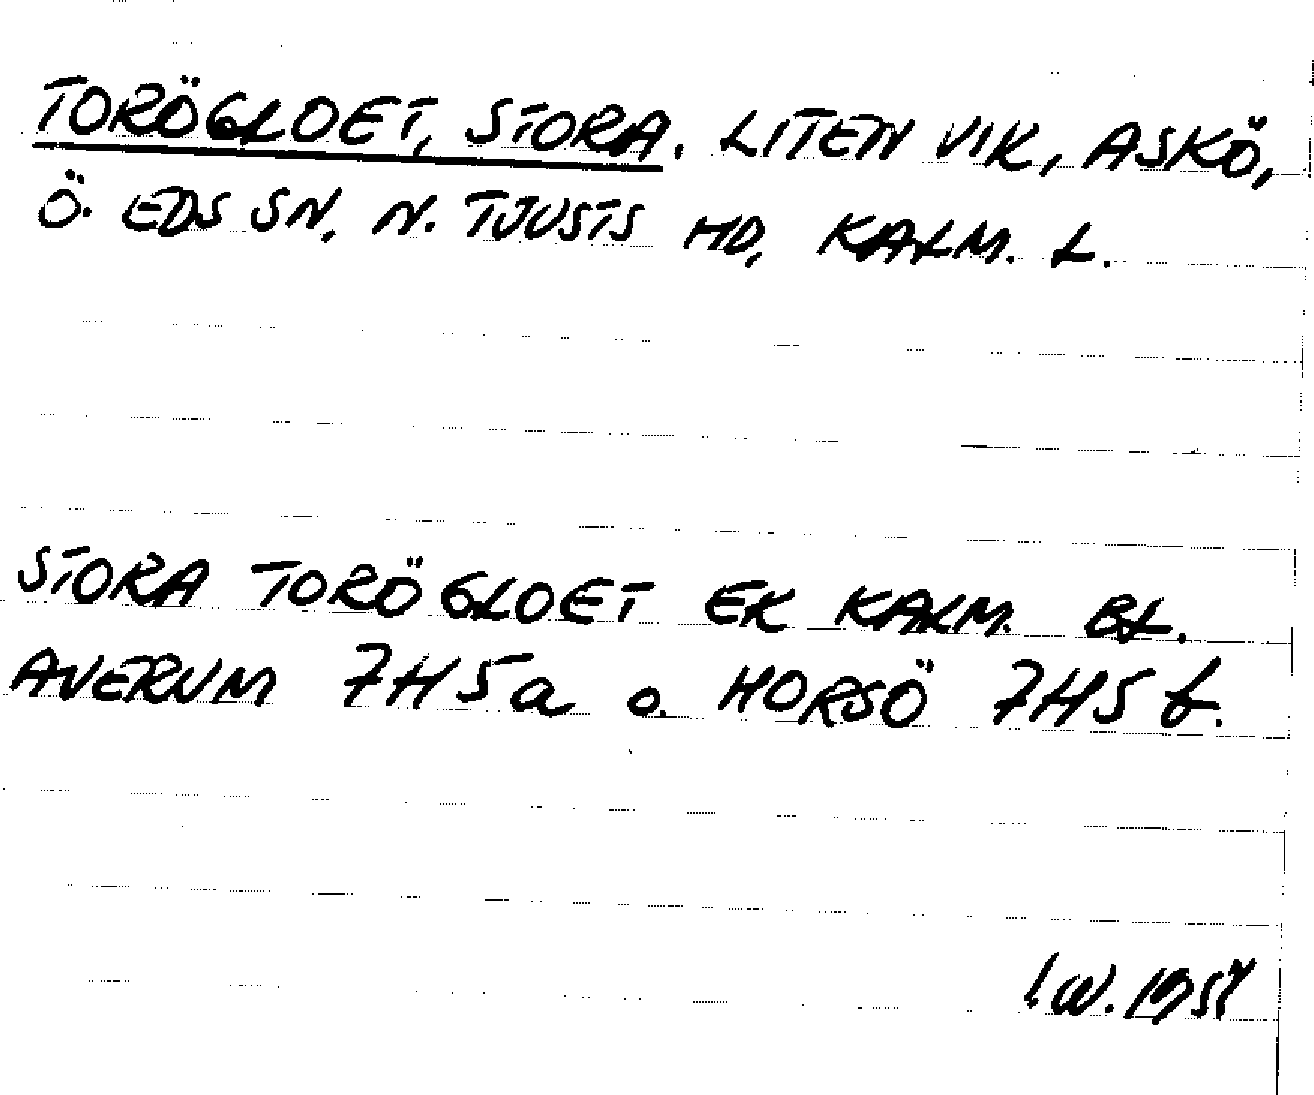 TORÖGLOET, STORA. LITEN VIK, ASKÖ,
Ö. EDS SN, N. TJUSTS HD, KALM. L.
STORA TORÖGLOET EK KALM. BL.
AVERUM 7H5a o. HORSÖ 7H5b.